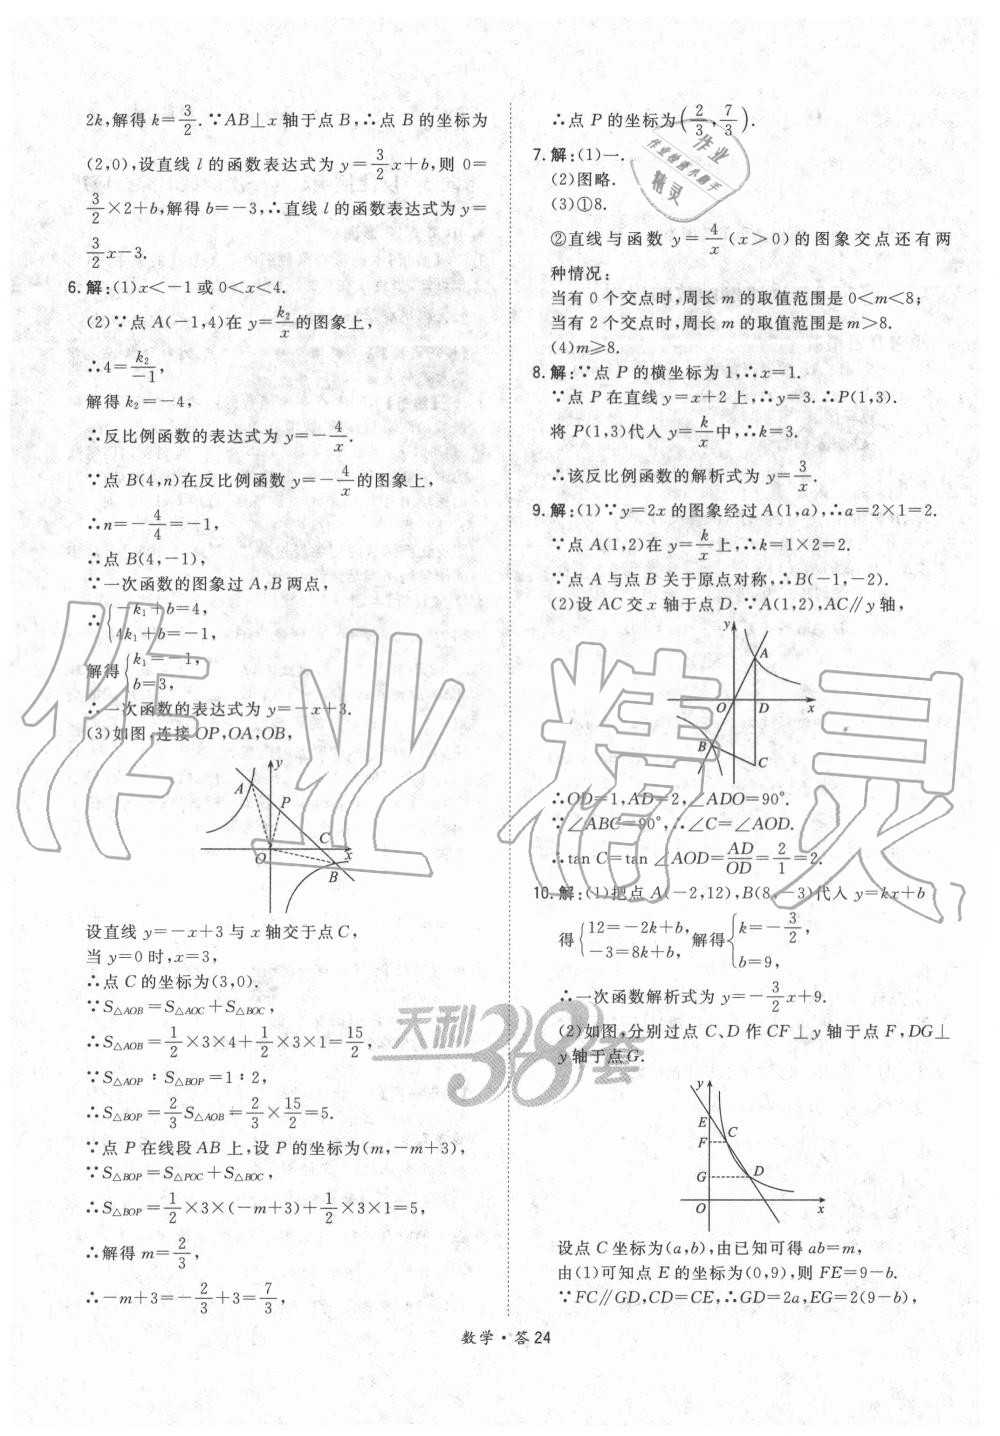 2k,解得 k=3/2.∵AB⊥x 轴于点 B,∴点 B 的坐标为
(2,0),设直线 l 的函数表达式为 y=3/2x+b,则 0=
3/2×2+b,解得 b=-3,∴直线 l 的函数表达式为 y=
3/2x-3.
6. 解:(1)x<-1 或 0<x<4.
(2)∵点 A(-1,4)在 y=k₂/x的图象上,
∴4=k₂/-1,
解得 k₂=-4,
∴反比例函数的表达式为 y=-4/x.
∵点 B(4,n)在反比例函数 y=-4/x的图象上,
∴n=-4/4=-1,
∴点 B(4,-1),
∵一次函数的图象过 A,B 两点,
∴{-k₁+b=4,
4k₁+b=-1,
解得{k₁=-1,
b=3,
∴一次函数的表达式为 y=-x+3.
(3)如图,连接 OP,OA,OB,
y
A
P
C
O
x
B
设直线 y=-x+3 与 x 轴交于点 C,
当 y=0 时,x=3,
∴点 C 的坐标为(3,0).
∵S△AOB=S△AOC+S△BOC,
∴S△AOB=1/2×3×4+1/2×3×1=15/2,
∵S△AOP∶S△BOP=1∶2,
∴S△BOP=2/3S△AOB=2/3×15/2=5.
∵点 P 在线段 AB 上,设 P 的坐标为(m,-m+3),
∵S△BOP=S△POC+S△BOC,
∴S△BOP=1/2×3×(-m+3)+1/2×3×1=5,
∴解得 m=2/3,
∴-m+3=-2/3+3=7/3,
∴点 P 的坐标为(2/3,7/3).
7. 解:(1)一.
(2)图略.
(3)①8.
②直线与函数 y=4/x(x>0)的图象交点还有两
种情况:
当有 0 个交点时,周长 m 的取值范围是 0<m<8;
当有 2 个交点时,周长 m 的取值范围是 m>8.
(4)m≥8.
8. 解:∵点 P 的横坐标为 1,∴x=1.
∵点 P 在直线 y=x+2 上,∴y=3.∴P(1,3).
将 P(1,3)代入 y=k/x中,∴k=3.
∴该反比例函数的解析式为 y=3/x.
9. 解:(1)∵y=2x 的图象经过 A(1,a),∴a=2×1=2.
∵点 A(1,2)在 y=k/x上,∴k=1×2=2.
∵点 A 与点 B 关于原点对称,∴B(-1,-2).
(2)设 AC 交 x 轴于点 D.∵A(1,2),AC∥y 轴,
y
A
O
D
x
B
C
∴OD=1,AD=2,∠ADO=90°.
∵∠ABC=90°,∴∠C=∠AOD.
∴tan C=tan ∠AOD=AD/OD=2/1=2.
10. 解:(1)把点 A(-2,12),B(8,-3)代入 y=kx+b
得{12=-2k+b,
-3=8k+b,解得{k=-3/2,
b=9,
∴一次函数解析式为 y=-3/2x+9.
(2)如图,分别过点 C、D 作 CF⊥y 轴于点 F,DG⊥
y 轴于点 G.
y
E
F
C
G
D
O
x
设点 C 坐标为(a,b),由已知可得 ab=m,
由(1)可知点 E 的坐标为(0,9),则 FE=9-b.
∵FC∥GD,CD=CE,∴GD=2a,EG=2(9-b),
数学·答 24
作业精灵
天利38套
作业
作业检查小助手
精灵